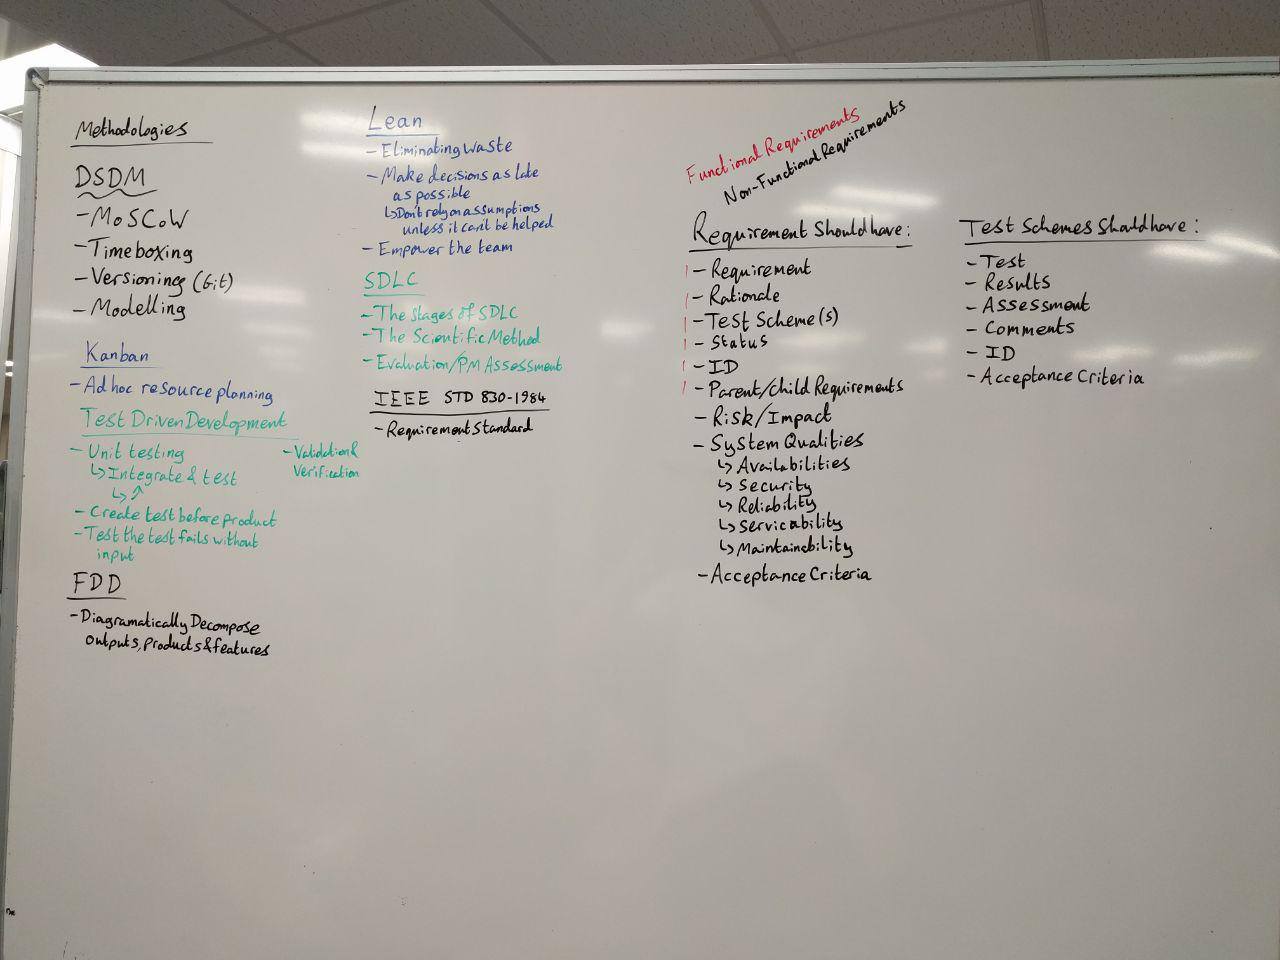 Methodologies
DSDM
- MoSCoW
- Timeboxing
- Versioning (Git)
- Modelling
Kanban
- Ad hoc resource planning
Test Driven Development
- Unit testing
↳ Integrate & test
↳ ↗
- Create test before product
- Test the test fails without
input
- Validation &
Verification
FDD
- Diagramatically Decompose
outputs, products & features
Lean
- Eliminating Waste
- Make decisions as late
as possible
↳ Don't rely on assumptions
unless it can't be helped
- Empower the team
SDLC
- The stages of SDLC
- The Scientific Method
- Evaluation/PM Assessment
IEEE STD 830-1984
- Requirement Standard
Functional Requirements
Non-Functional Requirements
Requirement Should have:
- Requirement
- Rationale
- Test Scheme(s)
- Status
- ID
- Parent/Child Requirements
- Risk/Impact
- System Qualities
↳ Availabilities
↳ Security
↳ Reliability
↳ Servicability
↳ Maintainability
- Acceptance Criteria
Test Schemes Should have:
- Test
- Results
- Assessment
- Comments
- ID
- Acceptance Criteria